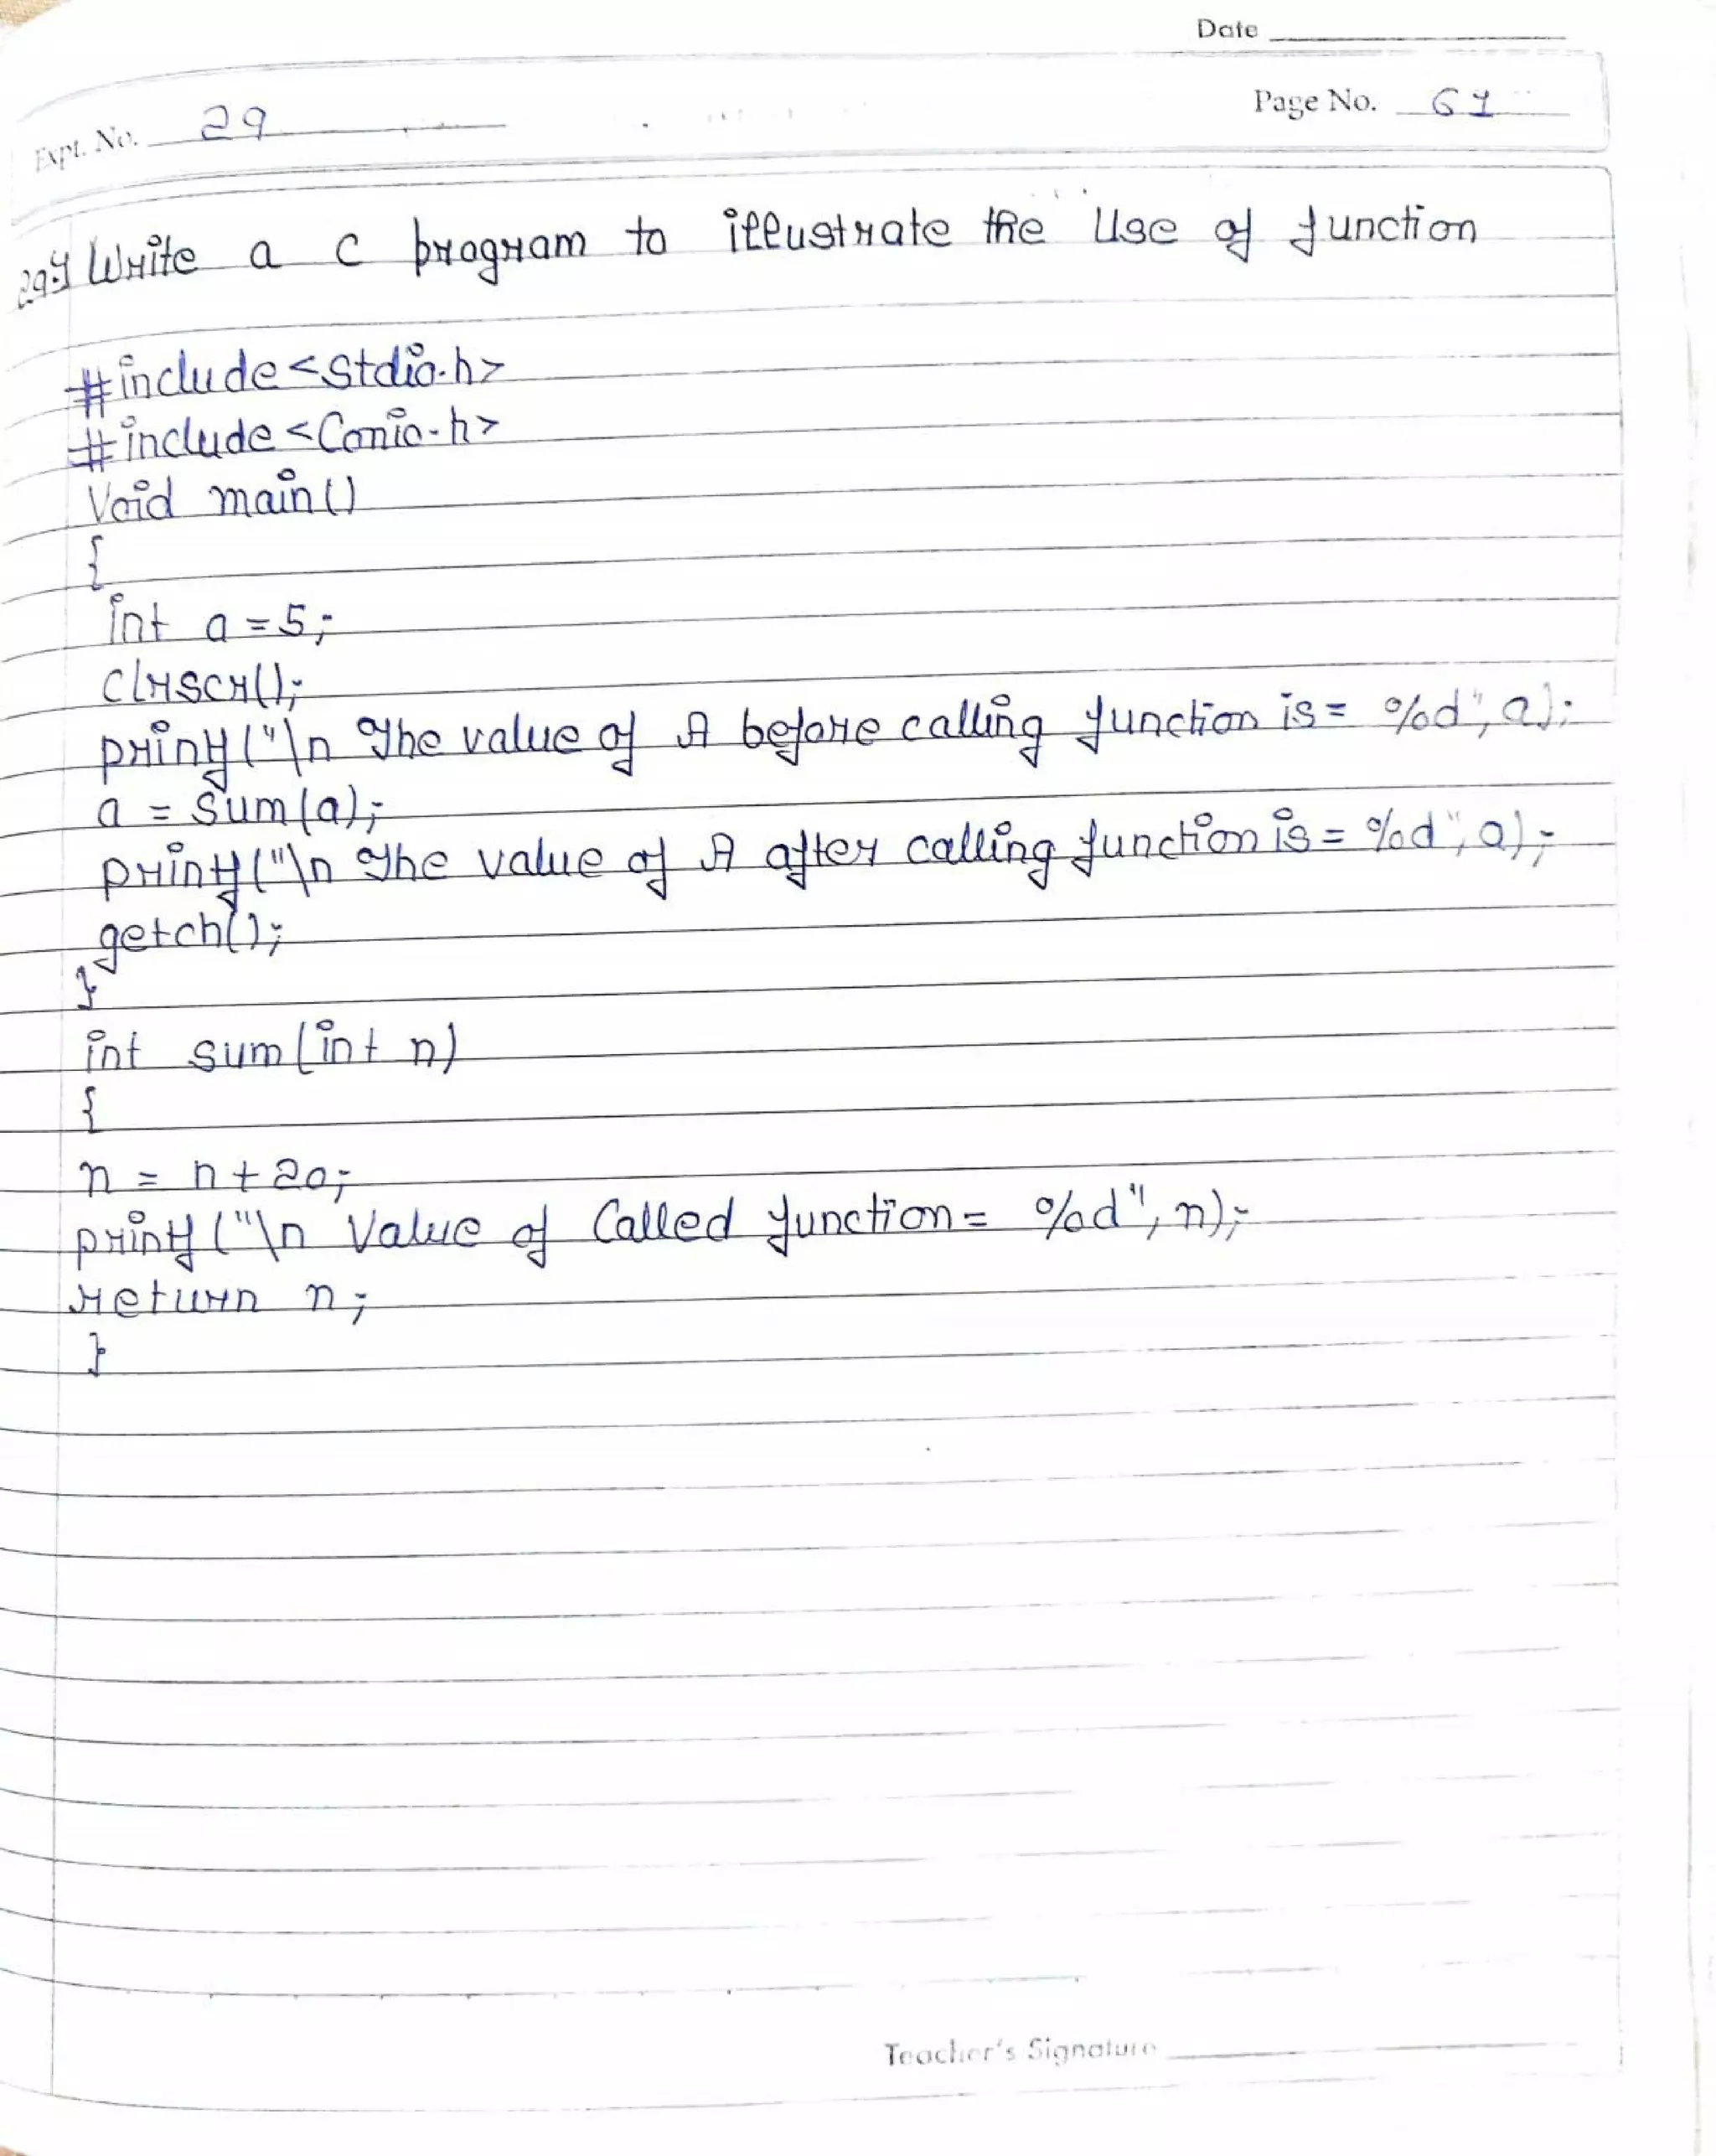 Date
Expt. No. 29
Page No. 61
29) Write a C program to illustrate the Use of function
#include<stdio.h>
#include<Conio.h>
Void main()
{
int a=5;
clrscr();
printf("\n The value of A before calling function is= %d", a);
a = Sum(a);
printf("\n The value of A after calling function is= %d", a);
getch();
}
int sum(int n)
{
n = n+20;
printf("\n Value of Called function= %d", n);
return n;
}
Teacher's Signature